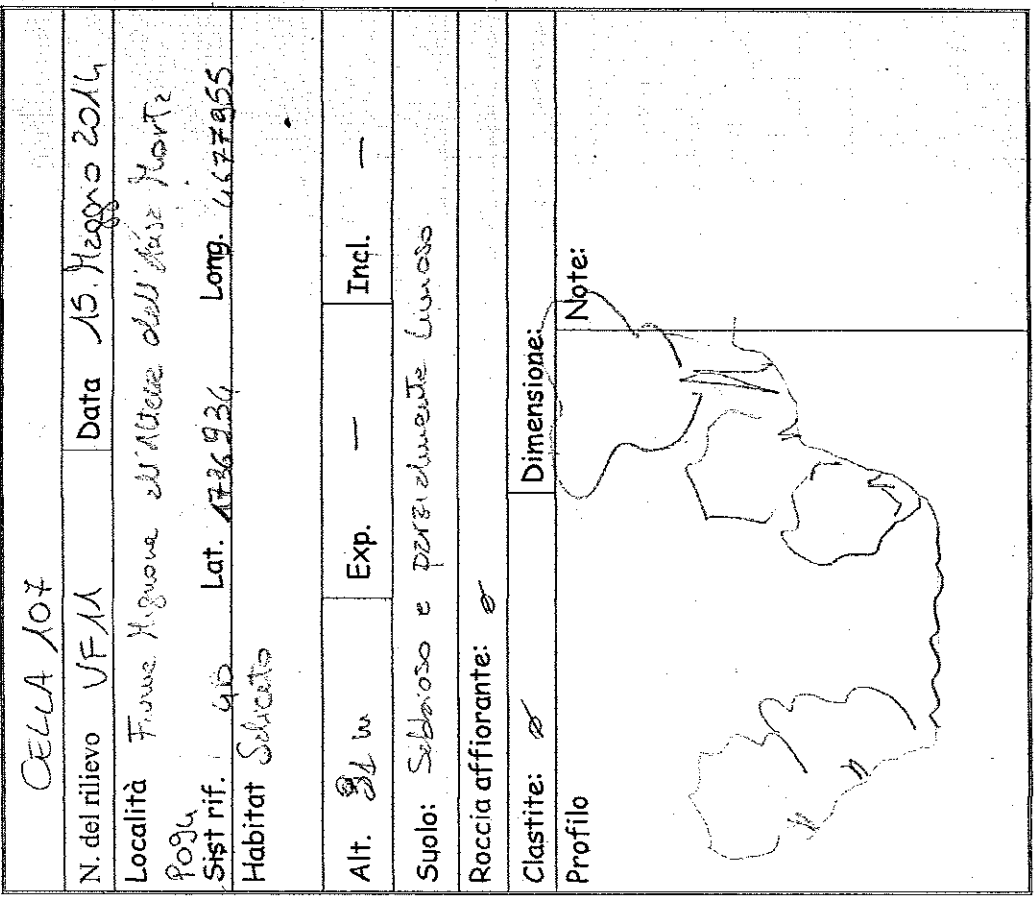 CELLA 107
N. del rilievo VF11 Data 15. Maggio 2014
Località Fiume Mignone all'Altezza dell' Morta
Sist rif. Lat. 1736934 Long. 4677955
Habitat Saliceto
Alt. 31 m Exp. — Incl. —
Suolo: Sabbioso e parzialmente Limoso
Roccia affiorante: ø
Clastite: ø Dimensione:
Profilo Note: